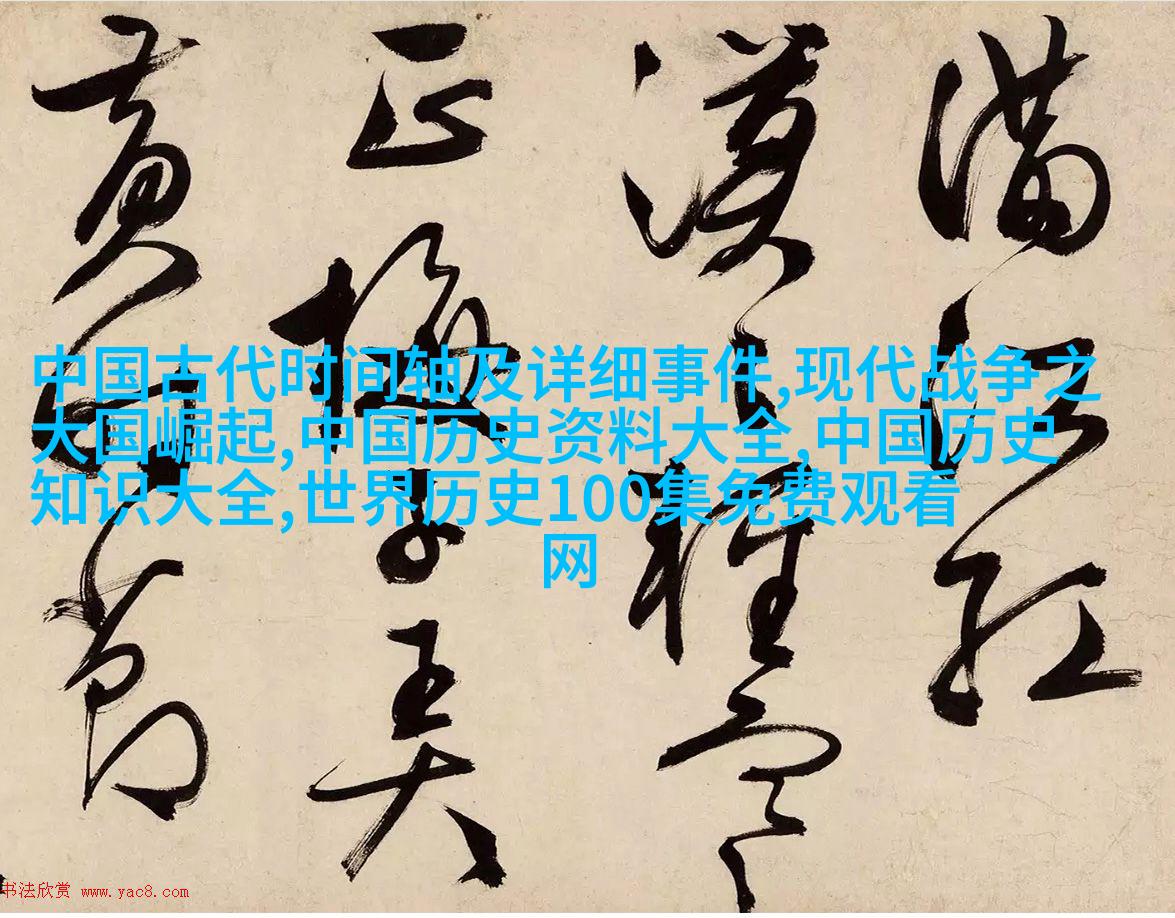 中国古代时间轴及详细事件,现代战争之
大国崛起,中国历史资料大全,中国历史
知识大全,世界历史100集免费观看
网
滿江紅
漠漠輕寒
正梅子弄
黃時節
书法欣赏 www.yac8.com